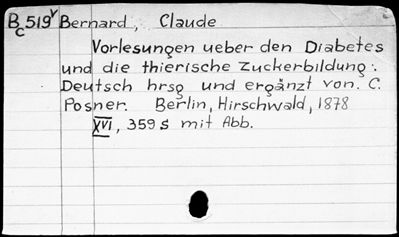 BC519Y Bernard, Claude
Vorlesungen ueber den Diabetes
und die thierische Zuckerbildung.
Deutsch hrsg und ergänzt von. C.
Posner. Berlin, Hirschwald, 1878
XVI, 359 S mit Abb.